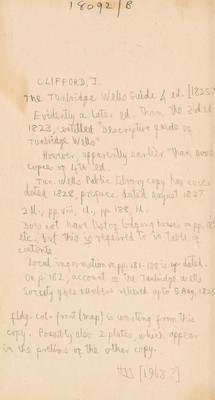 18092/B
CLIFFORD, J.
The Tunbridge Wells Guide 4 ed. [1825?]
Evidently a later ed. than the 3rd ed
1823, entitled "Descriptive guide of
Tunbridge Wells"
However, apparently earlier than some
copies of 4th ed.
Tun. Wells Public Library copy has cover
dated 1828, preface dated August 1827
2 ll., pp. viii, 1 l., pp. 188, 1 l.
Does not have list of lodging houses on pp. 18
etc. but this is referred to in table of
contents
Local information on pp. 181-188 is up-dated.
On p. 182, account of the Tunbridge Wells
Society gives number relieved up to 5 Aug, 1825
fldg. col. front (map) is wanting from this
copy. Possibly also 2 plates, which appear
in the prelims of the other copy.
[1968?]